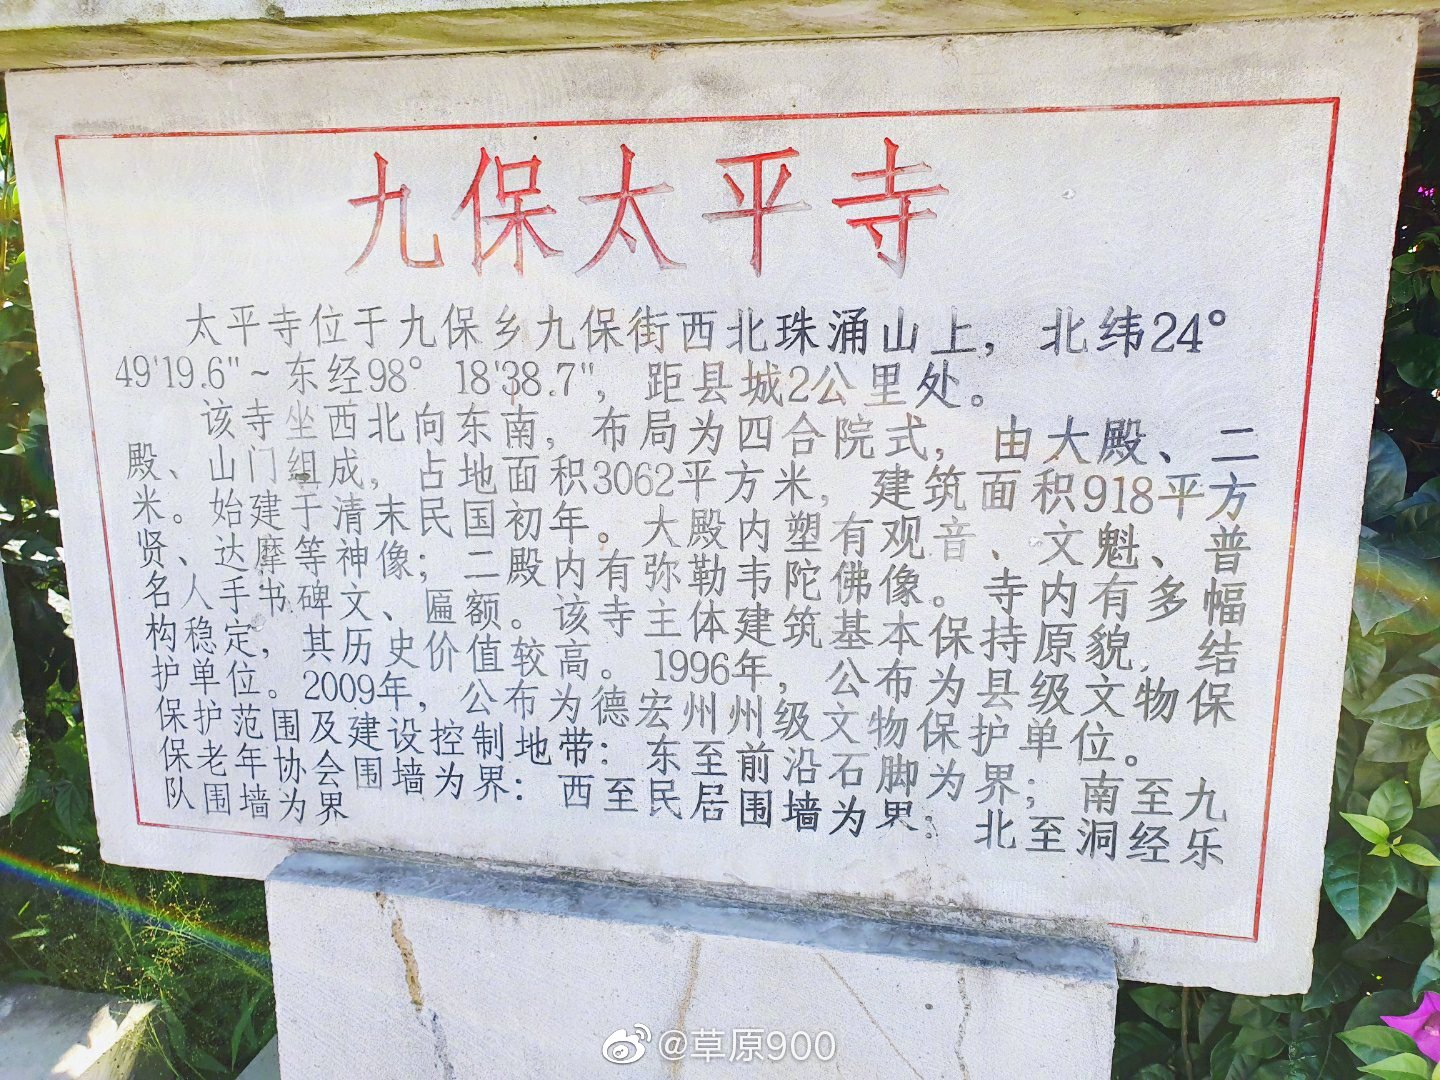 九保太平寺
太平寺位于九保乡九保街西北珠涌山上，北纬24°
49'19.6"~东经98° 18'38.7"，距县城2公里处。
该寺坐西北向东南，布局为四合院式，由大殿、二
殿、山门组成，占地面积3062平方米，建筑面积918平方
米。始建于清末民国初年。大殿内塑有观音、文魁、普
贤、达摩等神像；二殿内有弥勒韦陀佛像。寺内有多幅
名人手书碑文、匾额。该寺主体建筑基本保持原貌，结
构稳定，其历史价值较高。1996年，公布为县级文物保
护单位。2009年，公布为德宏州州级文物保护单位。
保护范围及建设控制地带：东至前沿石脚为界；南至九
保老年协会围墙为界：西至民居围墙为界：北至洞经乐
队围墙为界
@草原900